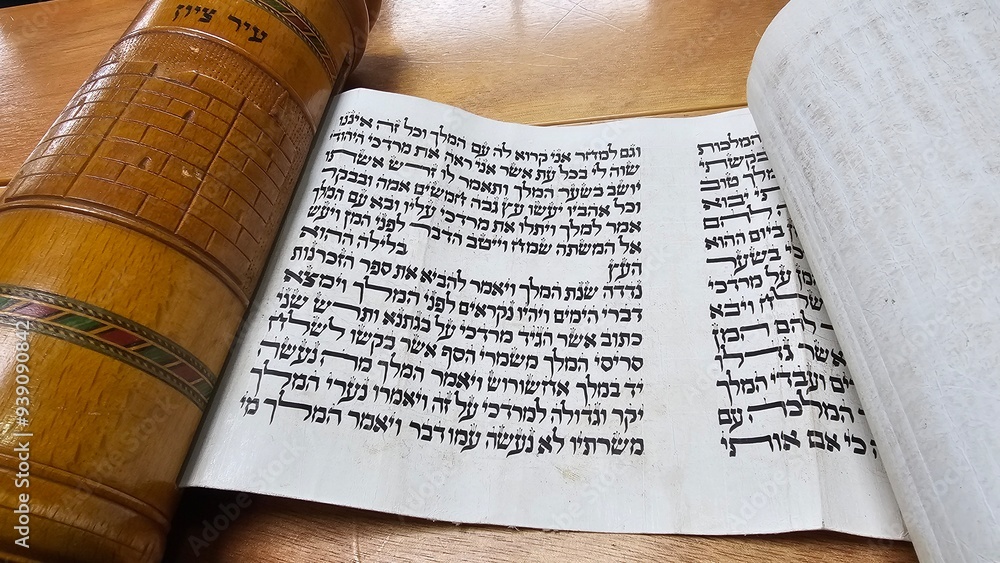 עיר ציון
המלכות
בקשתי
טוב
יבוא
להם
ביום ההוא
בשער
על מרדכי
ויבא
להם המן
אשר
ועבדי המלך
המלכה עם
כי אם אותי
וגם למחר אני קרוא לה עם המלך וכל זה איננו
שוה לי בכל עת אשר אני ראה את מרדכי היהודי
יושב בשער המלך ותאמר לו זרש אשתו
וכל אהביו יעשו עץ גבה חמשים אמה ובבקר
אמר למלך ויתלו את מרדכי עליו ובא עם המלך
אל המשתה שמח וייטב הדבר לפני המן ויעש
העץ בלילה ההוא
נדדה שנת המלך ויאמר להביא את ספר הזכרנות
דברי הימים ויהיו נקראים לפני המלך וימצא
כתוב אשר הגיד מרדכי על בגתנא ותרש שני
סריסי המלך משמרי הסף אשר בקשו לשלח
יד במלך אחשורוש ויאמר המלך מה נעשה
יקר וגדולה למרדכי על זה ויאמרו נערי המלך
משרתיו לא נעשה עמו דבר ויאמר המלך מי
Adobe Stock | #939090842